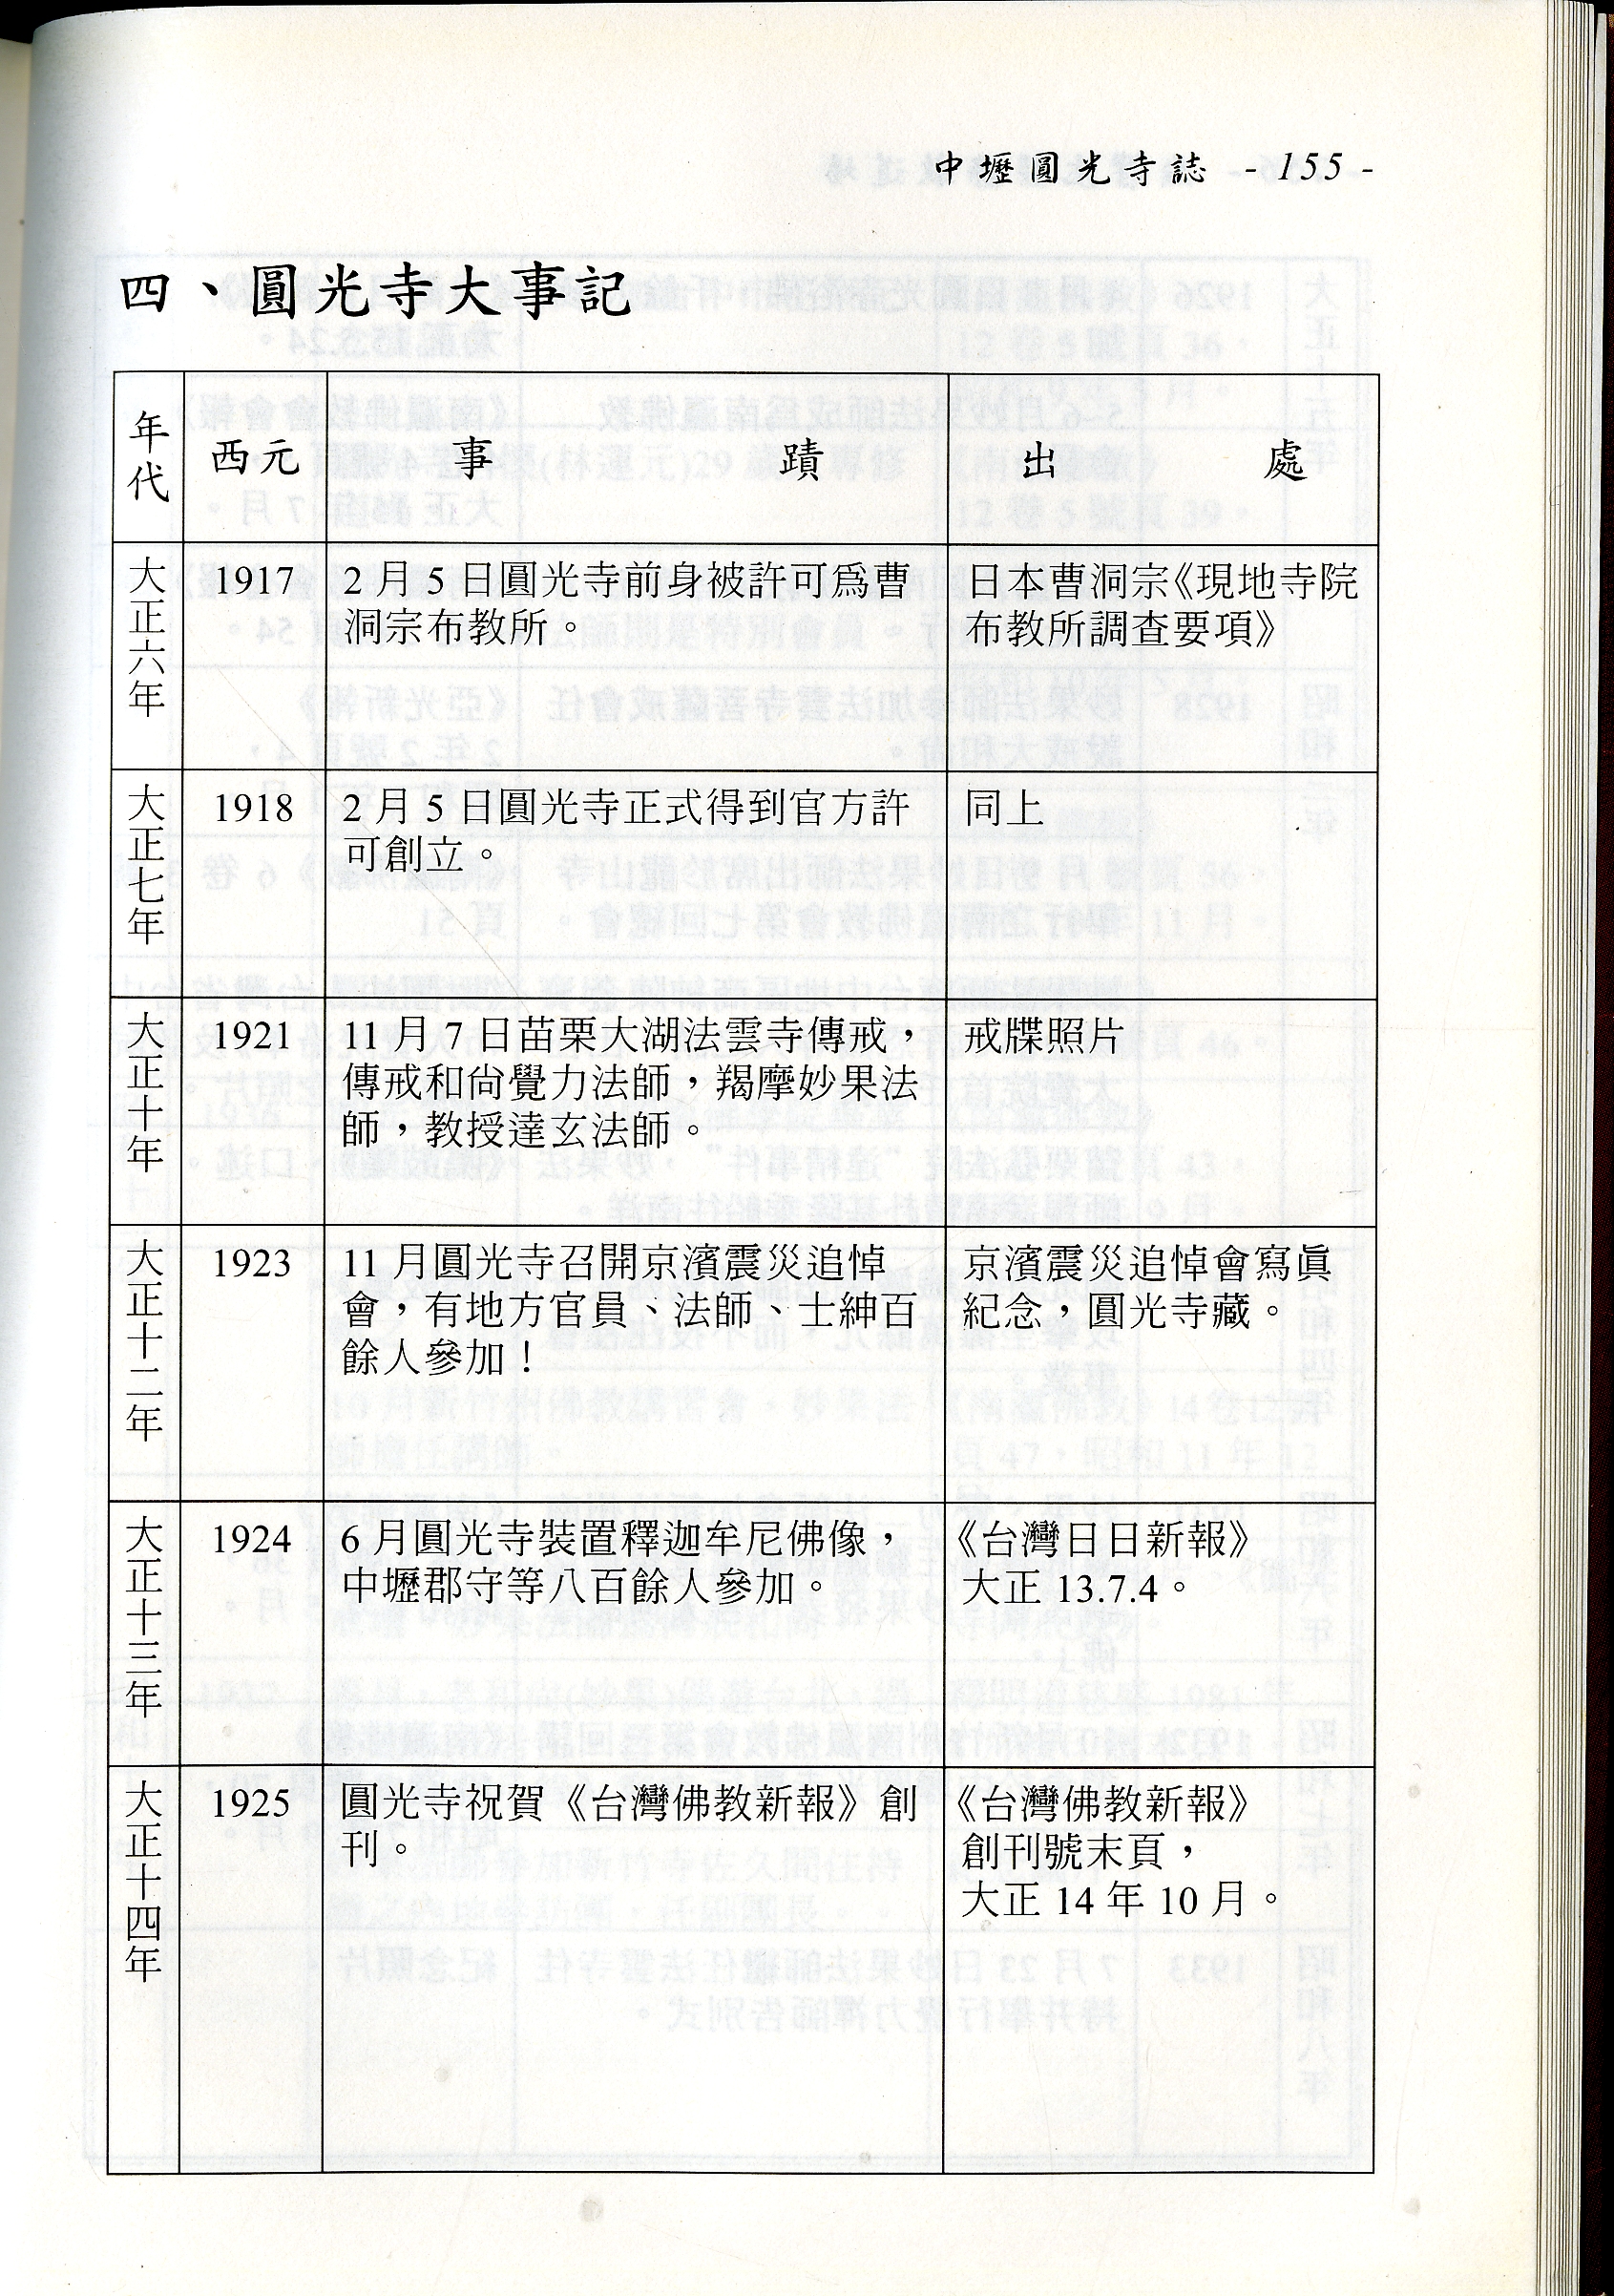 中壢圓光寺誌 - 155 -
四、圓光寺大事記
年代 西元 事蹟 出處
大正六年 1917 2月5日圓光寺前身被許可爲曹 日本曹洞宗《現地寺院
洞宗布教所。 布教所調查要項》
大正七年 1918 2月5日圓光寺正式得到官方許 同上
可創立。
大正十年 1921 11月7日苗栗大湖法雲寺傳戒， 戒牒照片
傳戒和尙覺力法師，羯摩妙果法
師，教授達玄法師。
大正十二年 1923 11月圓光寺召開京濱震災追悼 京濱震災追悼會寫眞
會，有地方官員、法師、士紳百 紀念，圓光寺藏。
餘人參加！
大正十三年 1924 6月圓光寺裝置釋迦牟尼佛像， 《台灣日日新報》
中壢郡守等八百餘人參加。 大正 13.7.4。
大正十四年 1925 圓光寺祝賀《台灣佛教新報》創 《台灣佛教新報》
刊。 創刊號末頁，
大正 14 年 10 月。